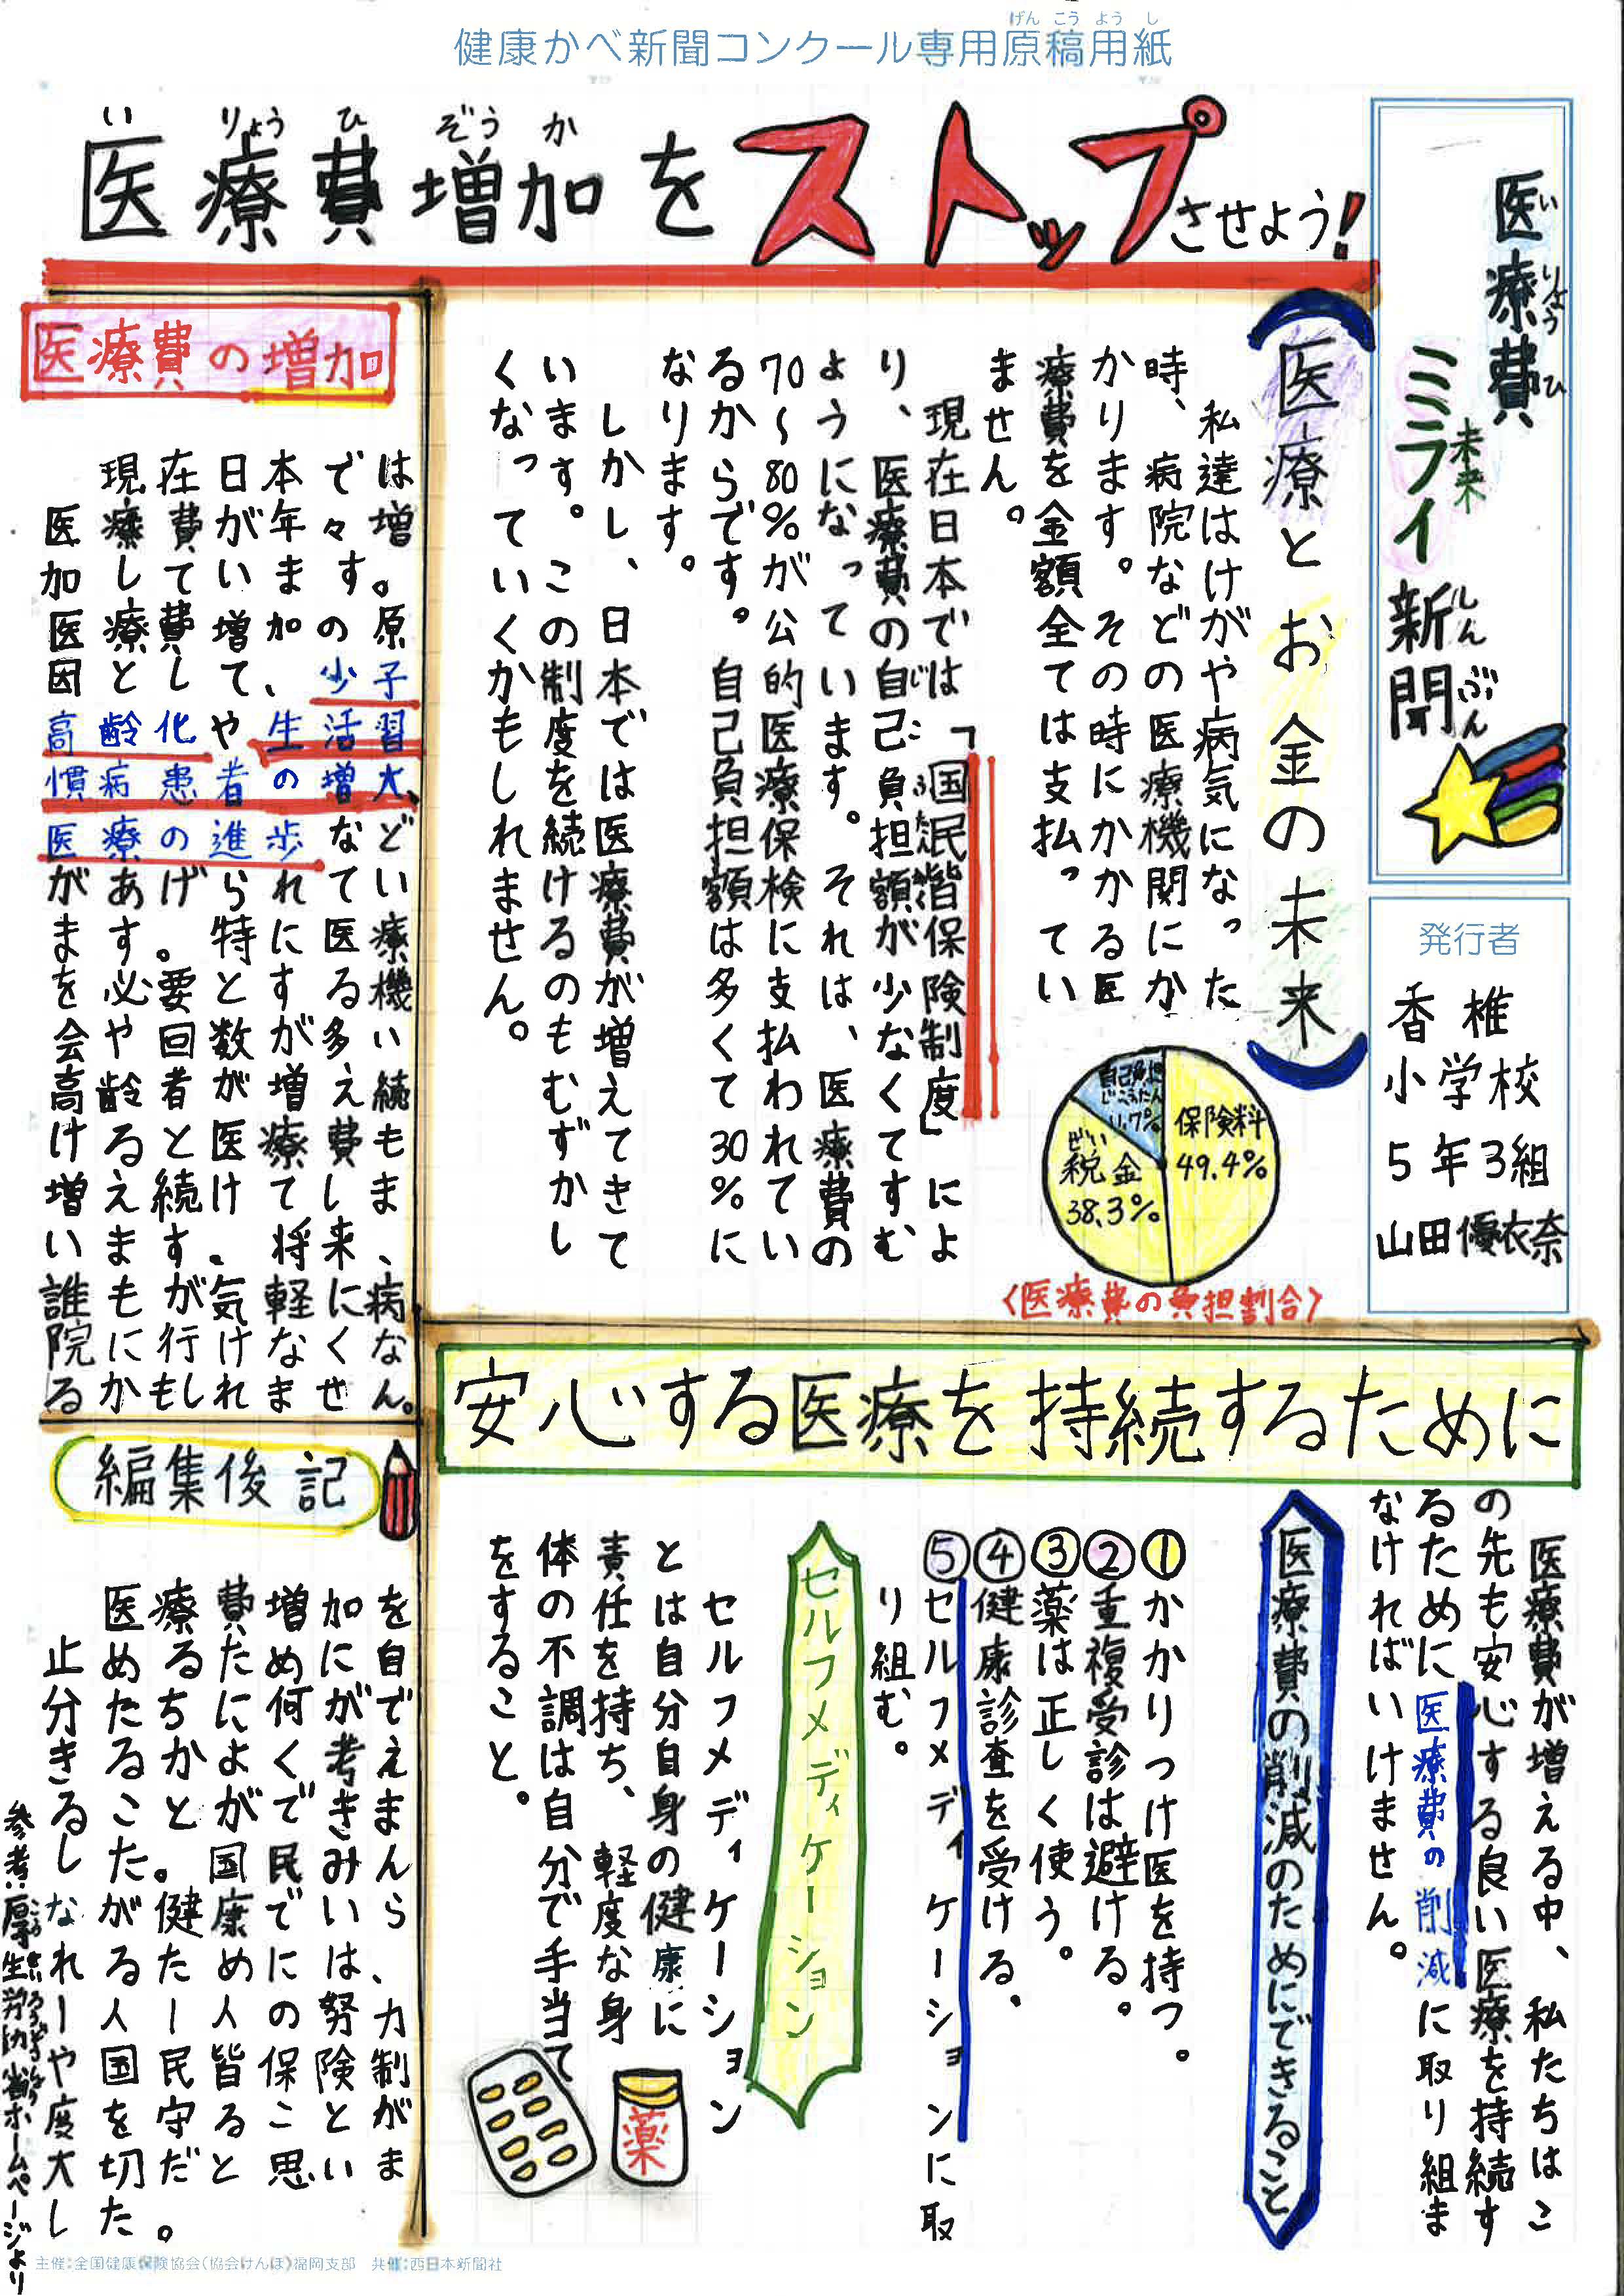 健康かべ新聞コンクール専用原稿用紙
げんこうようし
医療費
いりょうひ
ミライ
未来
新聞
しんぶん
発行者
香椎
小学校
5年3組
山田優衣奈
いりょうひぞうか
医療費増加をストップさせよう!
医療とお金の未来
私達はけがや病気になった
時、病院などの医療機関にか
かります。その時にかかる医
療費を金額全ては支払ってい
ません。
現在日本では「国民皆保険制度」によ
り、医療費の自己負担額が少なくてすむ
じこふたん
ようになっています。それは、医療費の
70〜80%が公的医療保検に支払われてい
るからです。自己負担額は多くて30%に
なります。
しかし、日本では医療費が増えてきて
います。この制度を続けるのもむずかし
くなっていくかもしれません。
保険料
49.4%
ぜい
税金
38.3%
自己負担
じこふたん
11.7%
〈医療費の負担割合〉
医療費の増加
現在日本では
医療費が年々増
加しています。
医療費増加の原
因として、少子
高齢化や生活習
慣病患者の増大、
医療の進歩など
があげられてい
ます。特に医療
を必要とする機
会や回数が多い
高齢者が増え続
けると医療費も
増え続けてしま
います。将来、
誰もが気軽に病
院に行けなくな
るかもしれません。
安心する医療を持続するために
医療費が増える中、私たちはこ
の先も安心する良い医療を持続す
るために医療費の削減に取り組ま
なければいけません。
医療費の削減のためにできること
①かかりつけ医を持つ。
②重複受診は避ける。
③薬は正しく使う。
④健康診査を受ける、
⑤セルフメディケーションに取
り組む。
セルフメディケーション
セルフメディケーション
とは自分自身の健康に
責任を持ち、軽度な身
体の不調は自分で手当て
をすること。
薬
編集後記
医療費増加を
止めるために自
分たちに何がで
きるかよく考え
ることができま
した。国民みん
なが健康でいら
れるためには、
一人一人の努力
や国民皆保険制
度を守ることが
大切だと思いま
した。
参考:厚生労働省ホームページより
こうせいろうどうしょう
主催:全国健康保険協会(協会けんぽ)福岡支部 共催:西日本新聞社